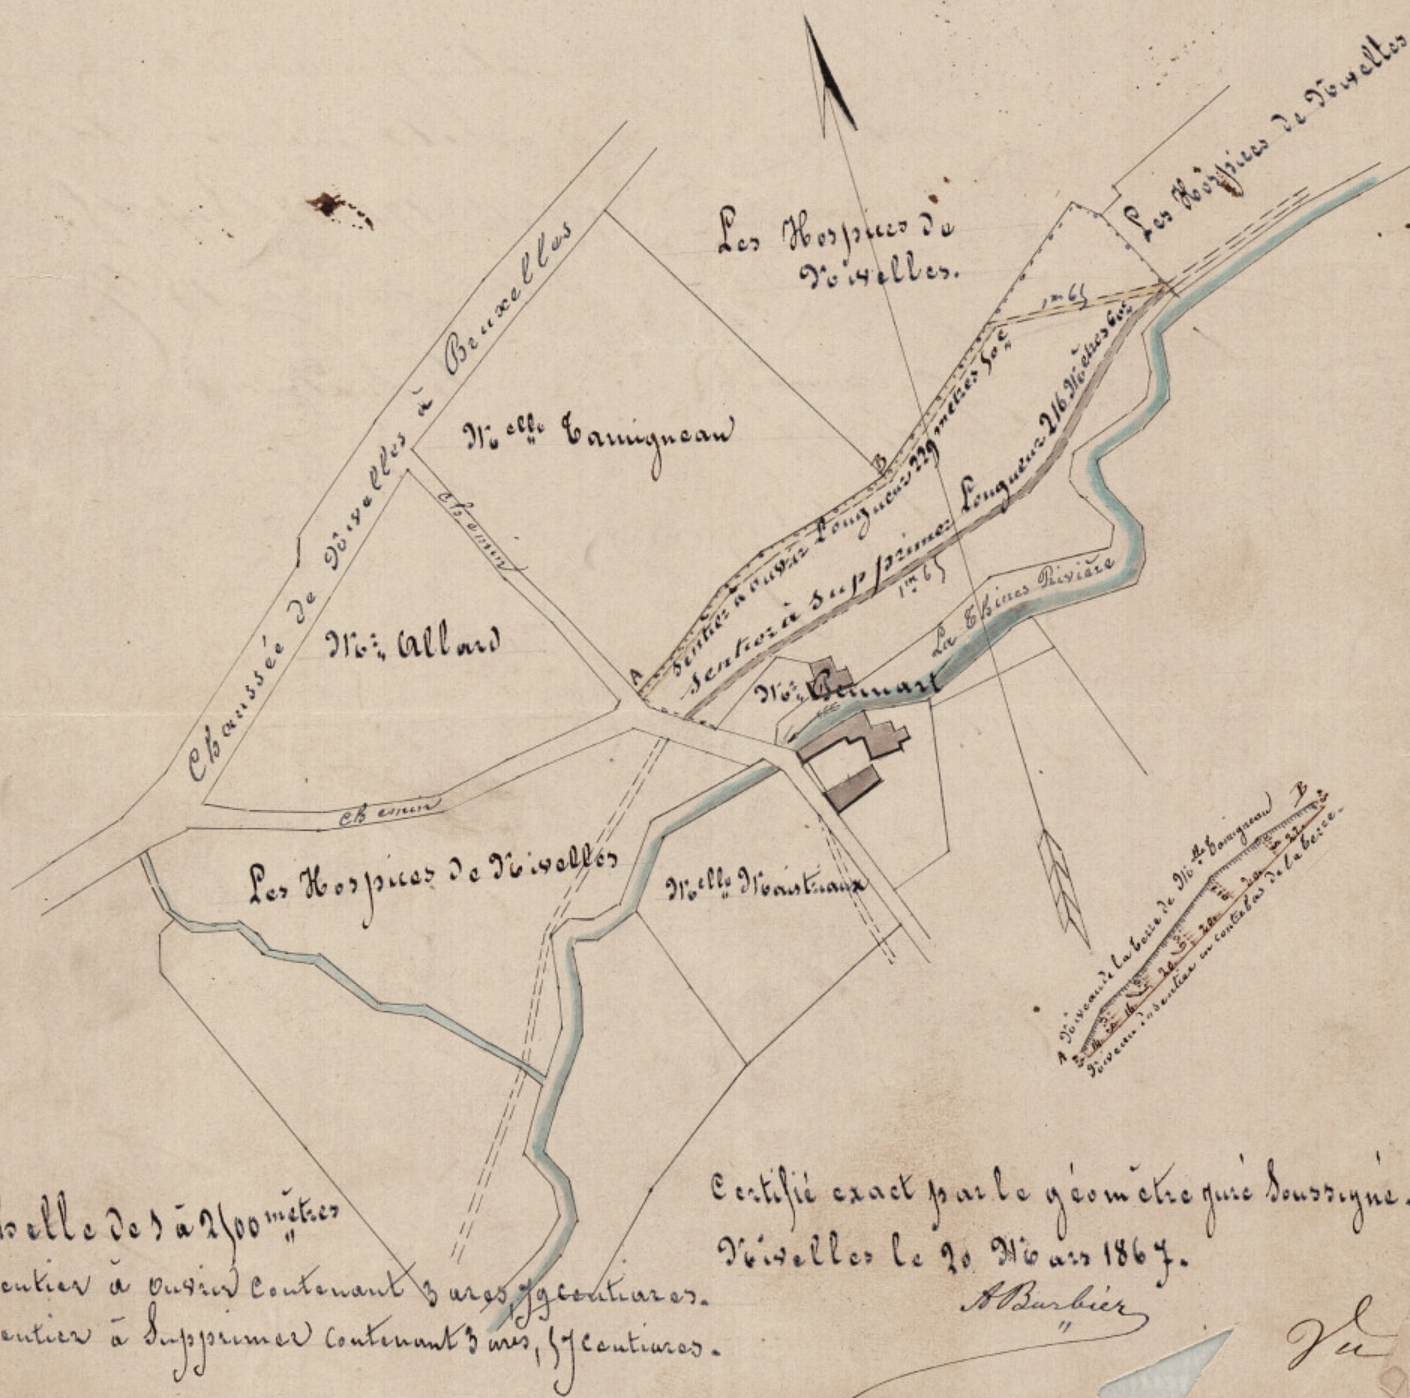 Les Hospices de Nivelles
Les Hospices de
Nivelles.
Chaussée de Nivelles à Bruxelles
1m 65
Melle Tamigneau
Chemin
B
Sentier à ouvrir Longueur 229 mètres 50c
Sentier à Supprimer Longueur 216 Mètres 60c
1m 65
La Thines Rivière
Mr Allard
A
Mr Gennart
Chemin
Les Hospices de Nivelles
Melle Maistriaux
Niveau de la terre de Melle Tamigneau
B
A
Niveau du sentier en contrebas de la terre.
elle de 1 à 2500 mètres
entier à ouvrir Contenant 3 ares, 79 centiares.
entier à Supprimer Contenant 3 ares, 57 centiares.
Certifié exact par le géomètre juré Soussigné.
Nivelles le 20 Mars 1867.
A Barbier
Vu